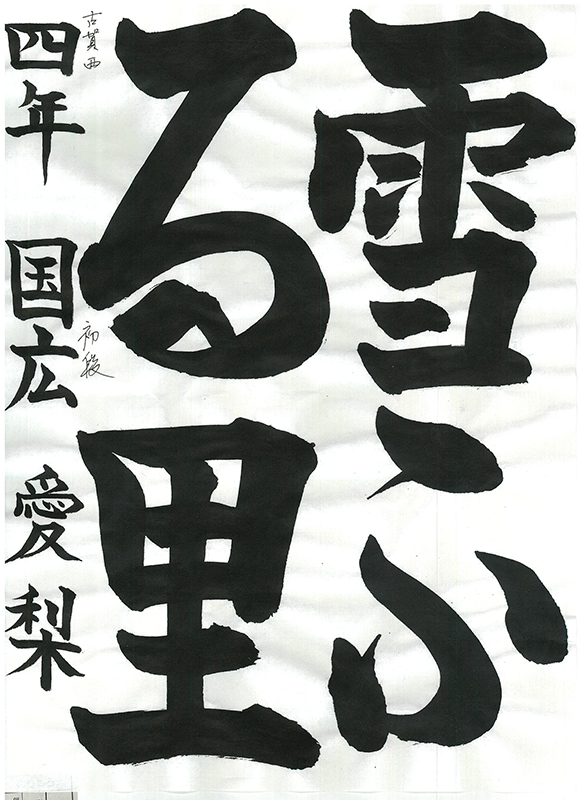 雪ふ
る里
古賀西
初段
四年 国広 愛梨